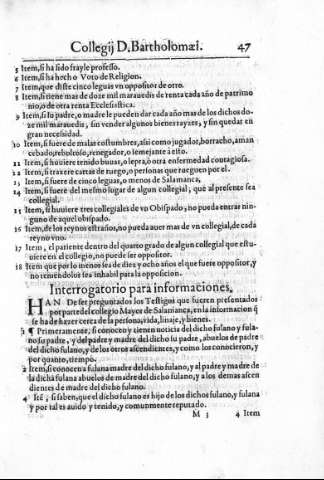 Collegij D. Bartholomæi. 47
5 Item, si ha sido frayle professo.
6 Item, si ha hecho Voto de Religion.
7 Item, que diste cinco leguas vn oppositor de otro.
8 Item, si tiene mas de doze mil marauedis de renta cada año de patrimo
nio, o de otra renta Ecclesiastica.
9 Item, si su padre, o madre le pueden dar cada año mas de los dichos do-
ze mil marauedis, sin vender algunos bienes rayzes, y sin quedar en
gran necessidad.
10 Item, si fuere de malas costumbres, assi como jugador, borracho, aman
cebado, reboltoso, renegador, o semejante a esto.
11 Item, si huuiere tenido buuas, o lepra, ò otra enfermedad contagiosa.
12 Item, si traxere cartas de ruego, o personas que rueguen por el.
13 Item, si fuere de cinco leguas, o menos de Salamanca,
14 Item, si fuere del mesmo lugar de algun collegial, que al presente sea
collegial.
15 Item, si huuiere tres collegiales de vn Obispado, no pueda entrar nin-
guno de aquel obispado.
16 Item, de los reynos estraños, no pueda auer mas de vn collegial, de cada
reyno vno.
17 Item, el pariente dentro del quarto grado de algun collegial que estu-
uiere en el collegio, no puede ser oppositor.
18 Item que por lo menos sea de diez y ocho años el que fuere oppositor, y
no teniendolos sea inhabil para la opposicion.
Interrogatorio para informaciones.
HAN De ser preguntados los Testigos que fueren presentados
por parte del collegio Mayor de Salamanca, en la informacion q̃
se ha de hazer cerca de la persona, vida, linaje, y bienes.
¶ Primeramente, si conocio y tienen noticia del dicho fulano y fula-
no su padre, y del padre y madre del dicho su padre, abuelos de padre
del dicho fulano, y de los otros ascendientes, y como los conocieron, y
por quanto, tiempo.
2 Item, si conocen a fulana madre del dicho fulano, y al padre y madre de
la dicha fulana abuelos de madre del dicho fulano, y a los demas ascen
dientes de madre del dicho fulano.
si saben, que el dicho fulano es hijo de los dichos fulano, y fulana
y por tal es auido y tenido, y comunmente reputado.
M 3 4 Item